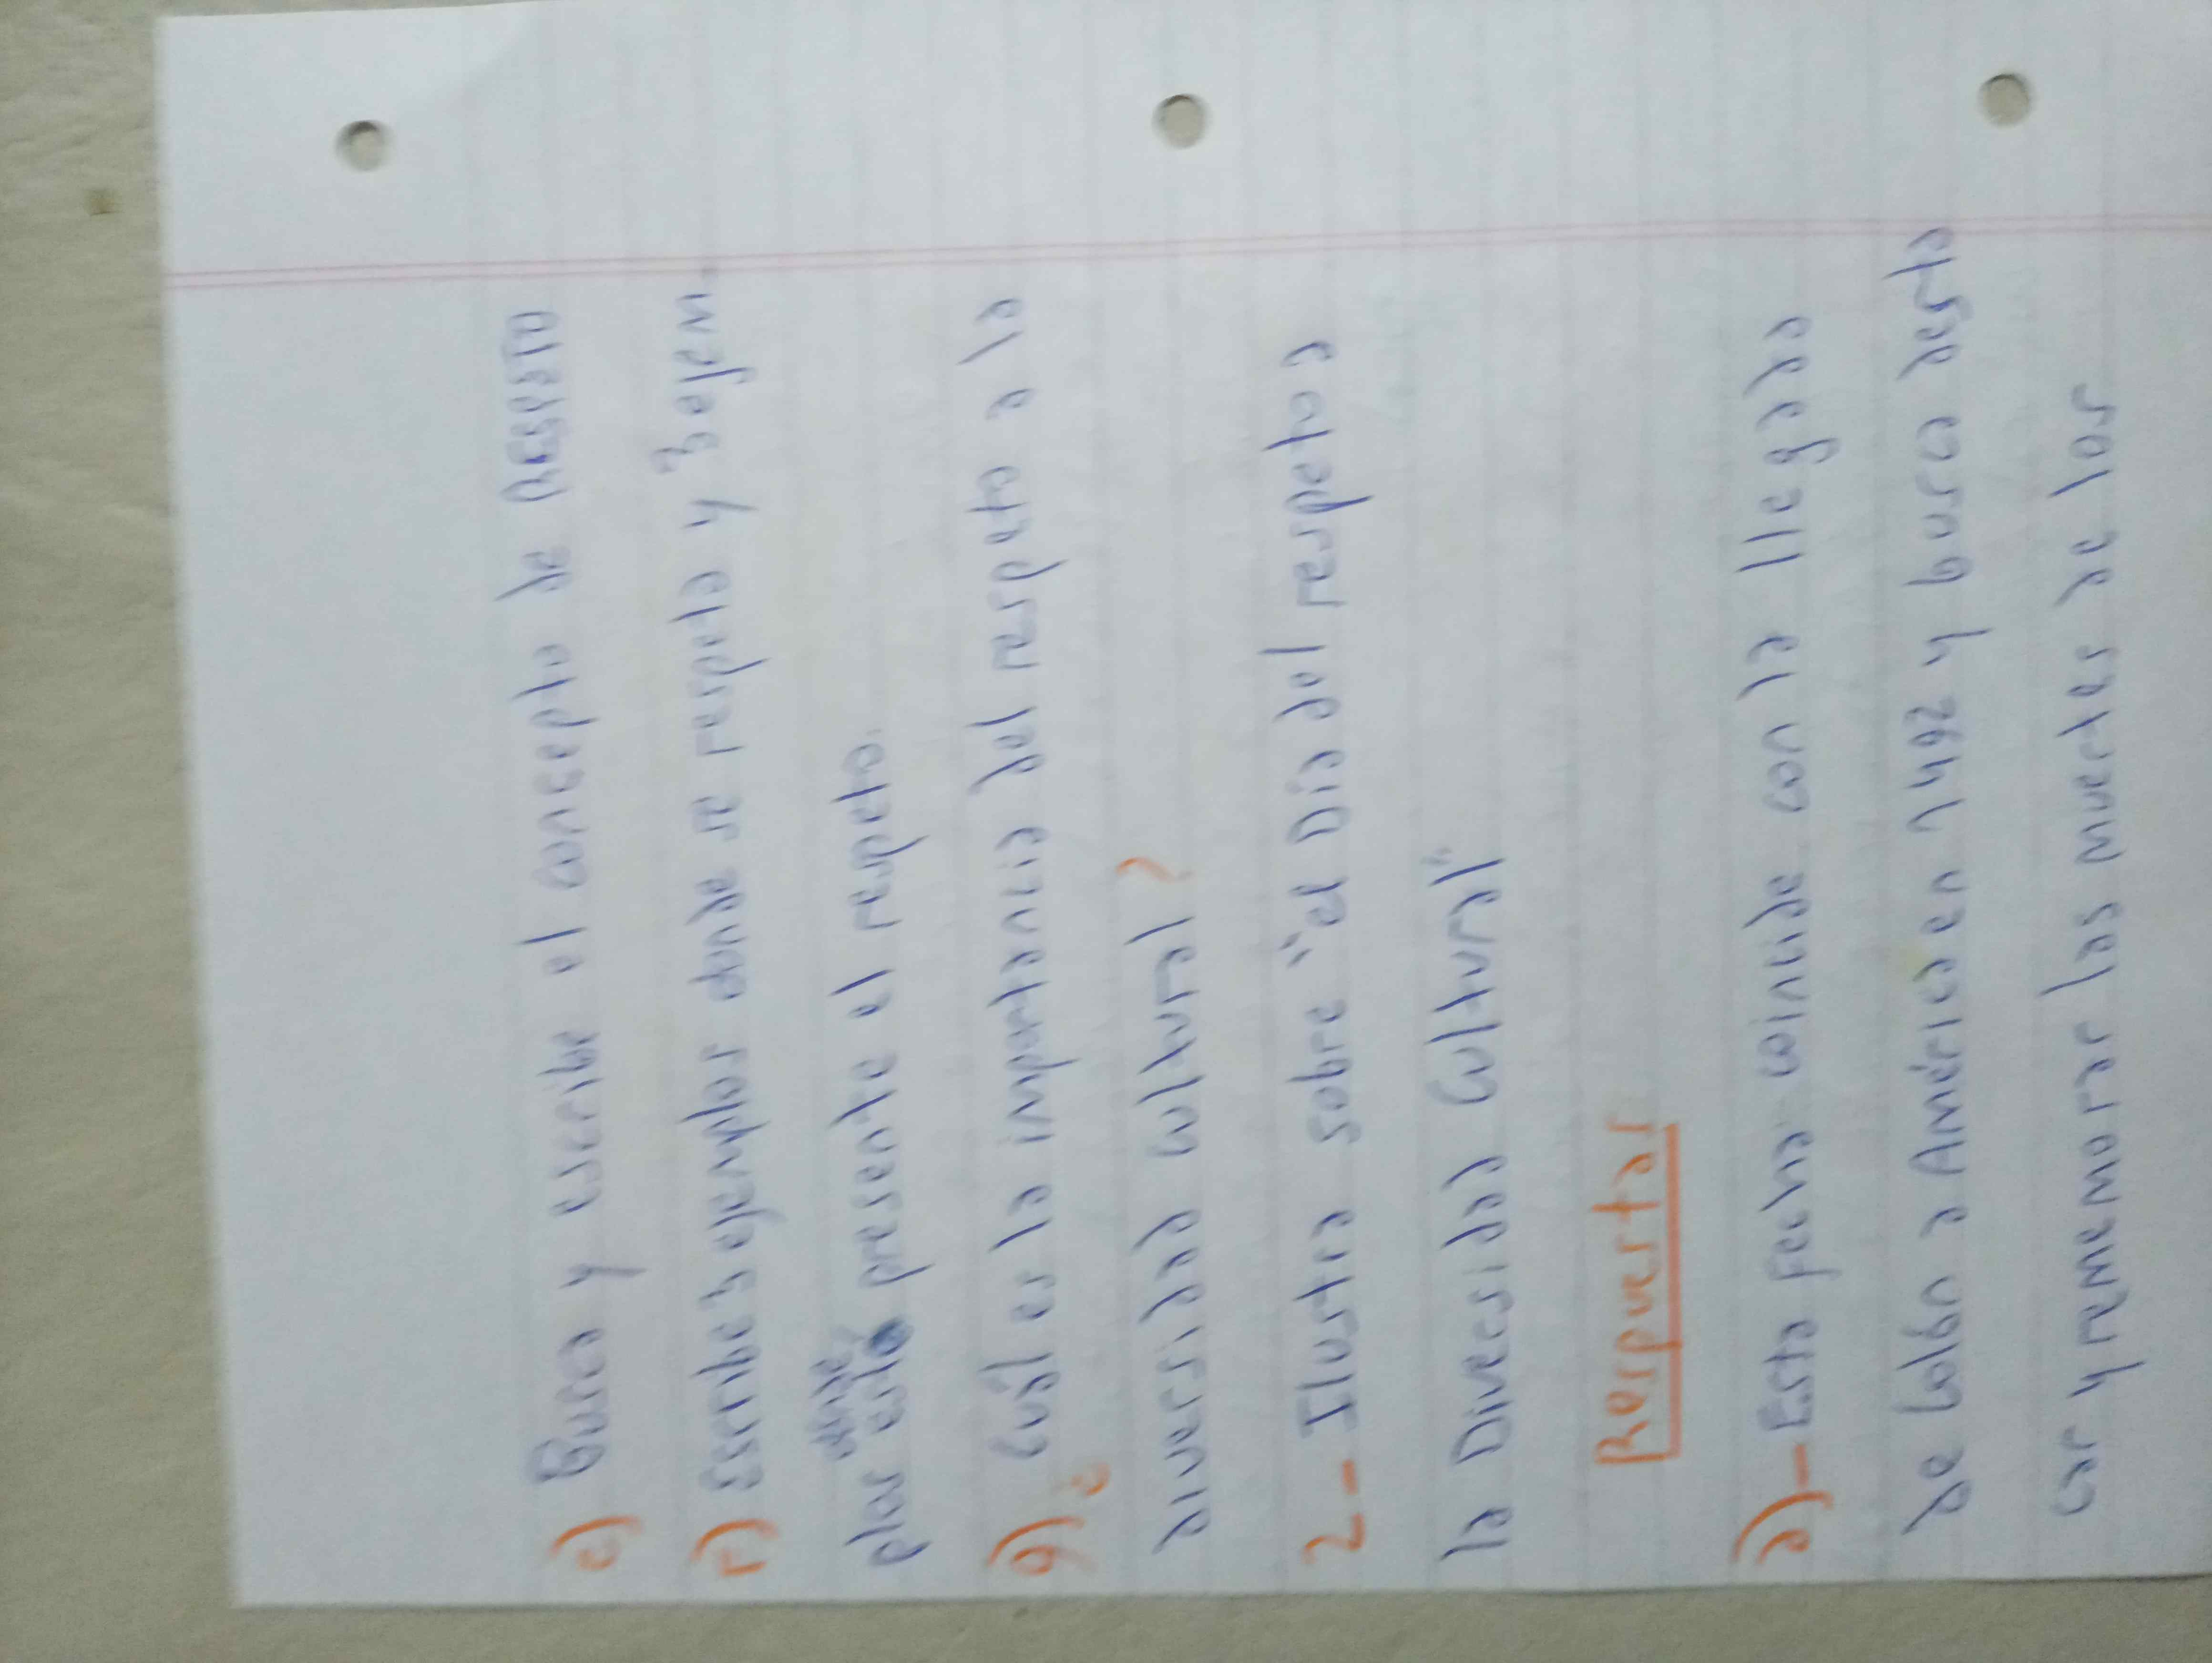 e) Busca y escribe el concepto de RESPETO
f) Escribe 3 ejemplos donde se respeta y 3 ejem-
plos donde está presente el respeto.
g) ¿Cuál es la importancia del respeto a la
diversidad cultural?
2- Ilustra sobre "el Día del respeto a
la Diversidad Cultural"
Respuestas
a)- Esta fecha coincide con la llegada
de Colón a América en 1492 y busca desta
car y rememorar las muertes de los